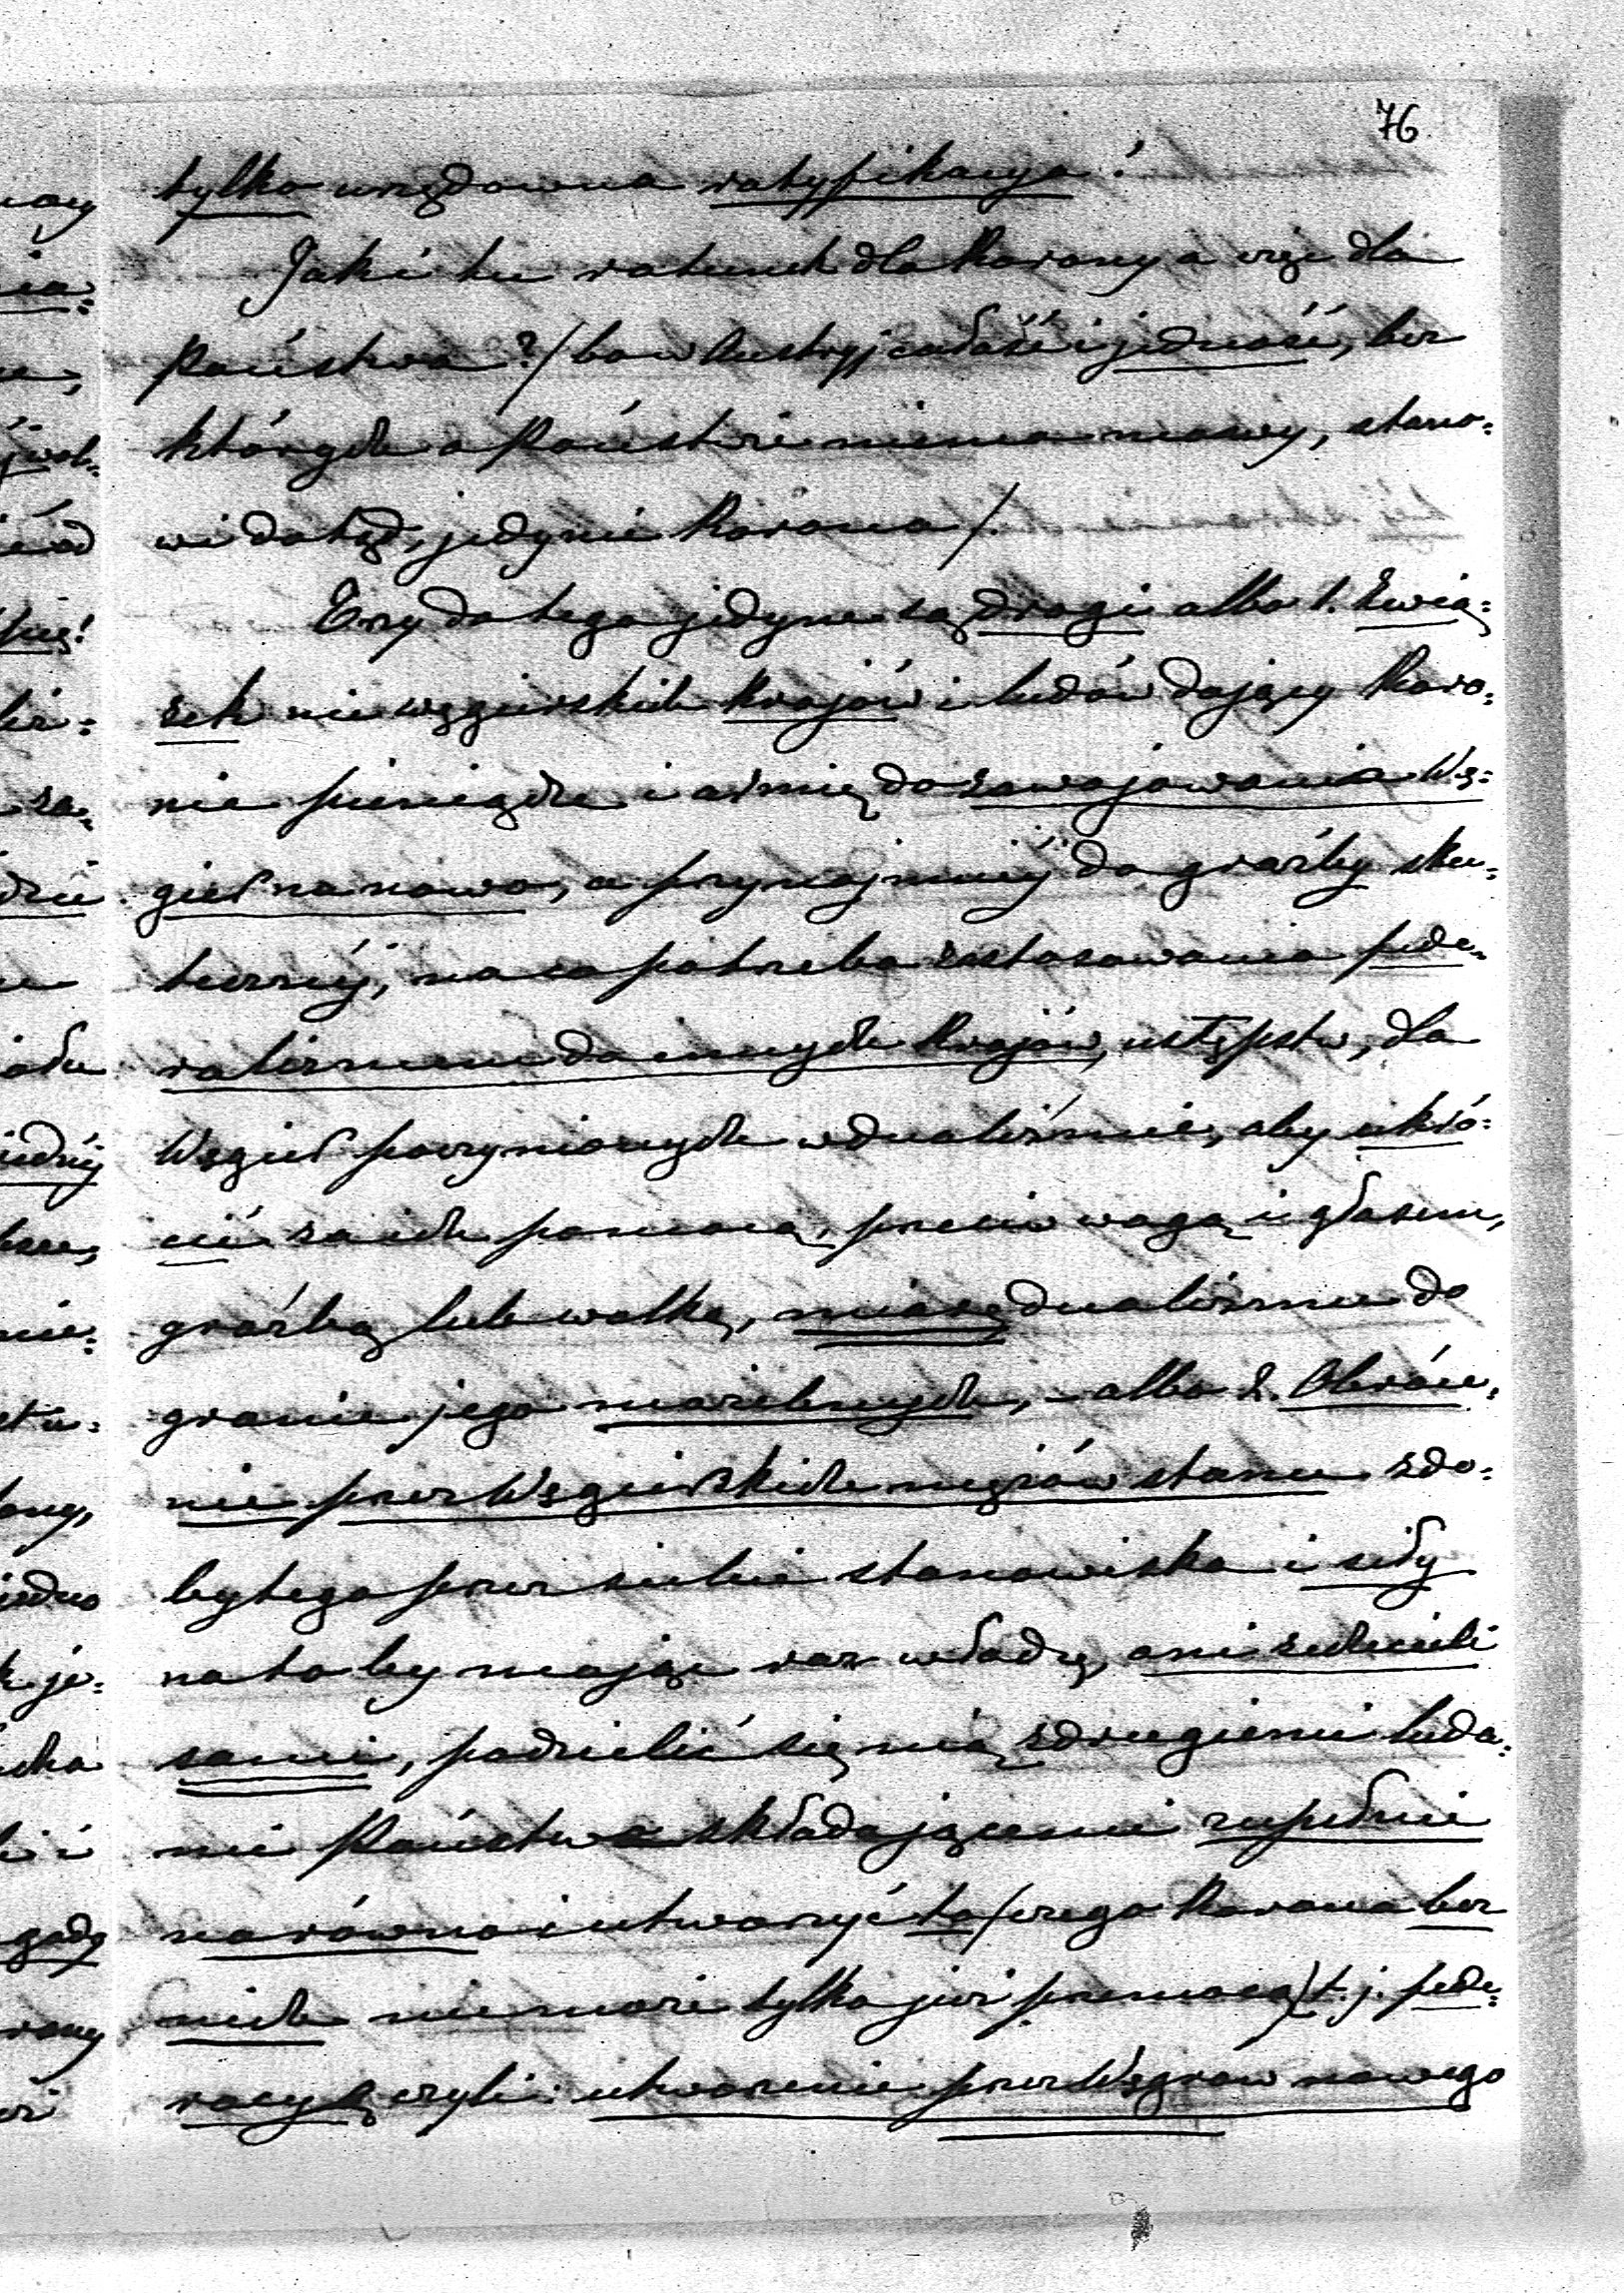 76
tylko urzędowna ratyfikacya!
Jakiż tu ratunek dla Korony a więc dla
Państwa? /bo w Austryj całość i jedność, bez
których o Państwie niema mowy, stano=
wi dotąd, jedynie Korona/.
Trzy do tego jedyne są drogi albo 1. Zwią=
zek nie węgierskich Krajów i ludów dający Koro=
nie pieniądze i armię do zawojowania Wę=
gier na nowo, a przynajmniéj do groźby sku=
tecznéj, na co potrzeba zastosowania fede=
ralizmu do innych Krajów, ustępstw, dla
Węgier poczynionych w dualiźmie, aby ukró=
cić za ich pomocą, przeciwwagą i głosem,
groźbą lub walką, miarę dualizmu do
granic jego niezbędnych, - albo 2. Obróce=
nie przez Węgierskich mężów stanu zdo=
bytego przez siebie stanowiska i siły
na to by mając raz władzę, oni zechcieli
sami, podzielić się nią z drugiemi luda=
mi Państwo składającemi zupełnie
na równo i utworzyć to /czego Korona bez
nich nie może tylko już przemocą/ t. j. fede=
racyą czyli: utworzenie przez Węgrów nowego
cay
ia=
ie,
ród
się!
za=
dzie
u
nie=
iedno
k je=
cha
i i
gody
rony